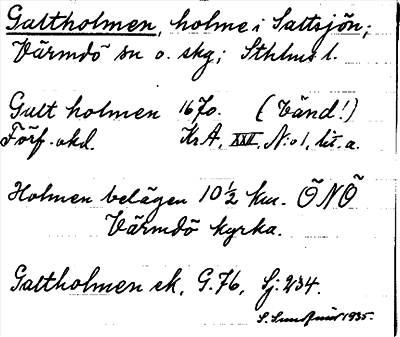 Galtholmen, holme i Saltsjön;
Värmdö sn o. skg; Sthlms l.
Galt holmen 1670. (Vänd!)
Förf. okd. Kr.A. XXII. N:o 1, lit. a.
Holmen belägen 10 1/2 km. ÖNÖ
Värmdö kyrka.
Galtholmen ek. G.76, Sj. 234.
S. 1935.